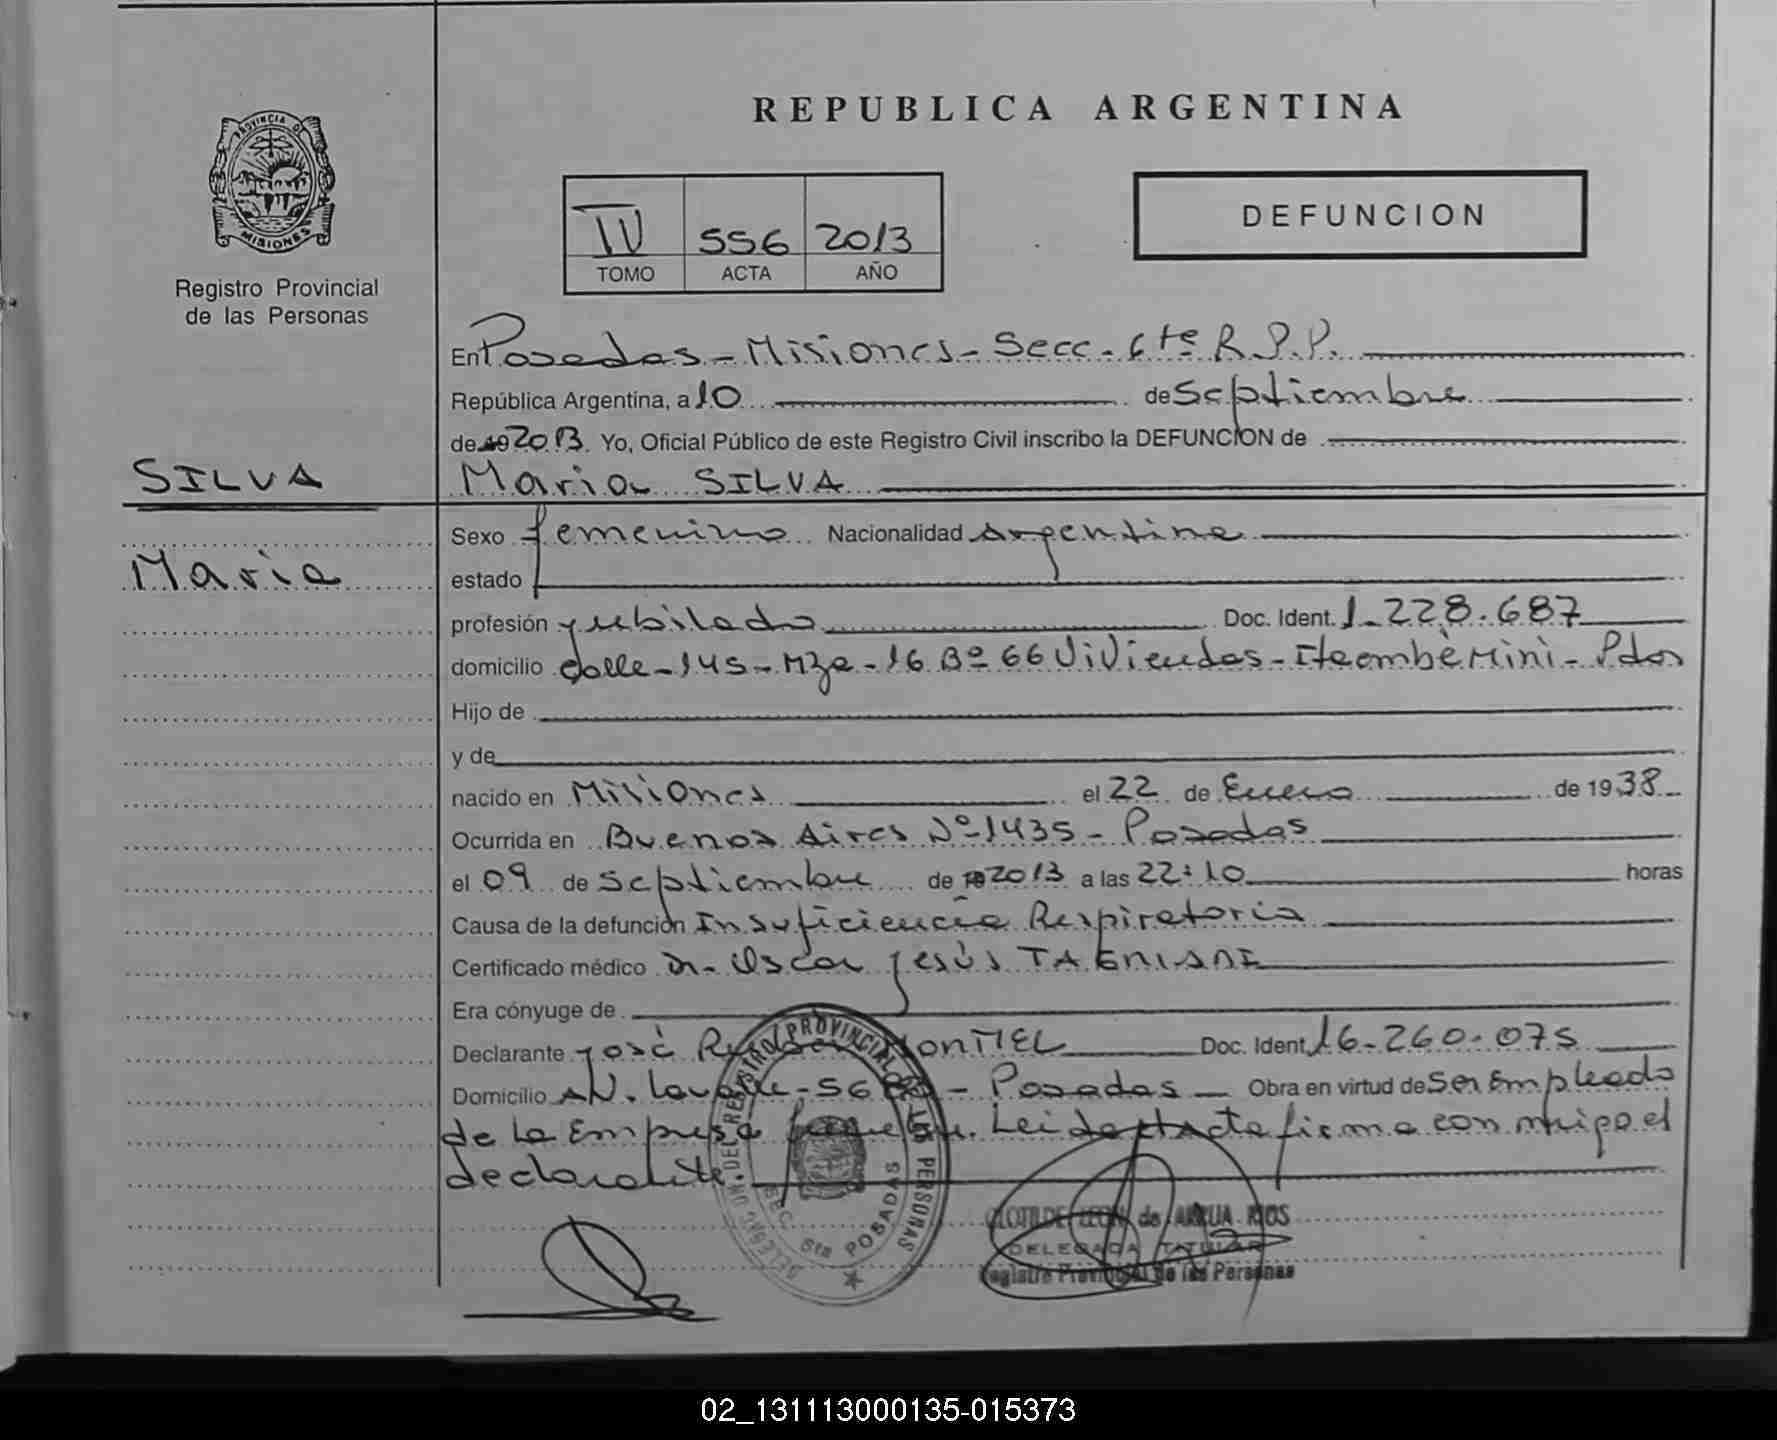 REPUBLICA ARGENTINA
PROVINCIA DE
MISIONES
Registro Provincial
de las Personas
DEFUNCION
IV 556 2013
TOMO ACTA AÑO
En Posadas - Misiones - Secc - 6ta R.P.P.
República Argentina, a 10 de Septiembre
de 19 2013. Yo, Oficial Público de este Registro Civil inscribo la DEFUNCION de
SILVA
Maria SILVA
Maria
Sexo femenino Nacionalidad Argentina
estado
profesión Jubilada Doc. Ident. 1.228.687
domicilio Calle - 145 - Mza - 16 Bº 66 Viviendas - Itaembè Minì - Pdas
Hijo de
y de
nacido en Misiones el 22 de Enero de 1938
Ocurrida en Buenos Aires Nº 1435 - Posadas
el 09 de Septiembre de 19 2013 a las 22:10 horas
Causa de la defunción Insuficiencia Respiratoria
Certificado médico Dr. Oscar Jesús
Era cónyuge de
Declarante José Doc. Ident. 16.260.075
Domicilio AV. - Posadas - Obra en virtud de Ser Empleado
de la Empresa Leida el Acta firma con migo el
declarante.
DELEGACION DEL REGISTRO PROVINCIAL DE LAS PERSONAS
SEC. 6ta POSADAS
CLOTILDE LEON de ARRUA RIOS
DELEGADA TITULAR
Registro Provincial de las Personas
02_131113000135-015373